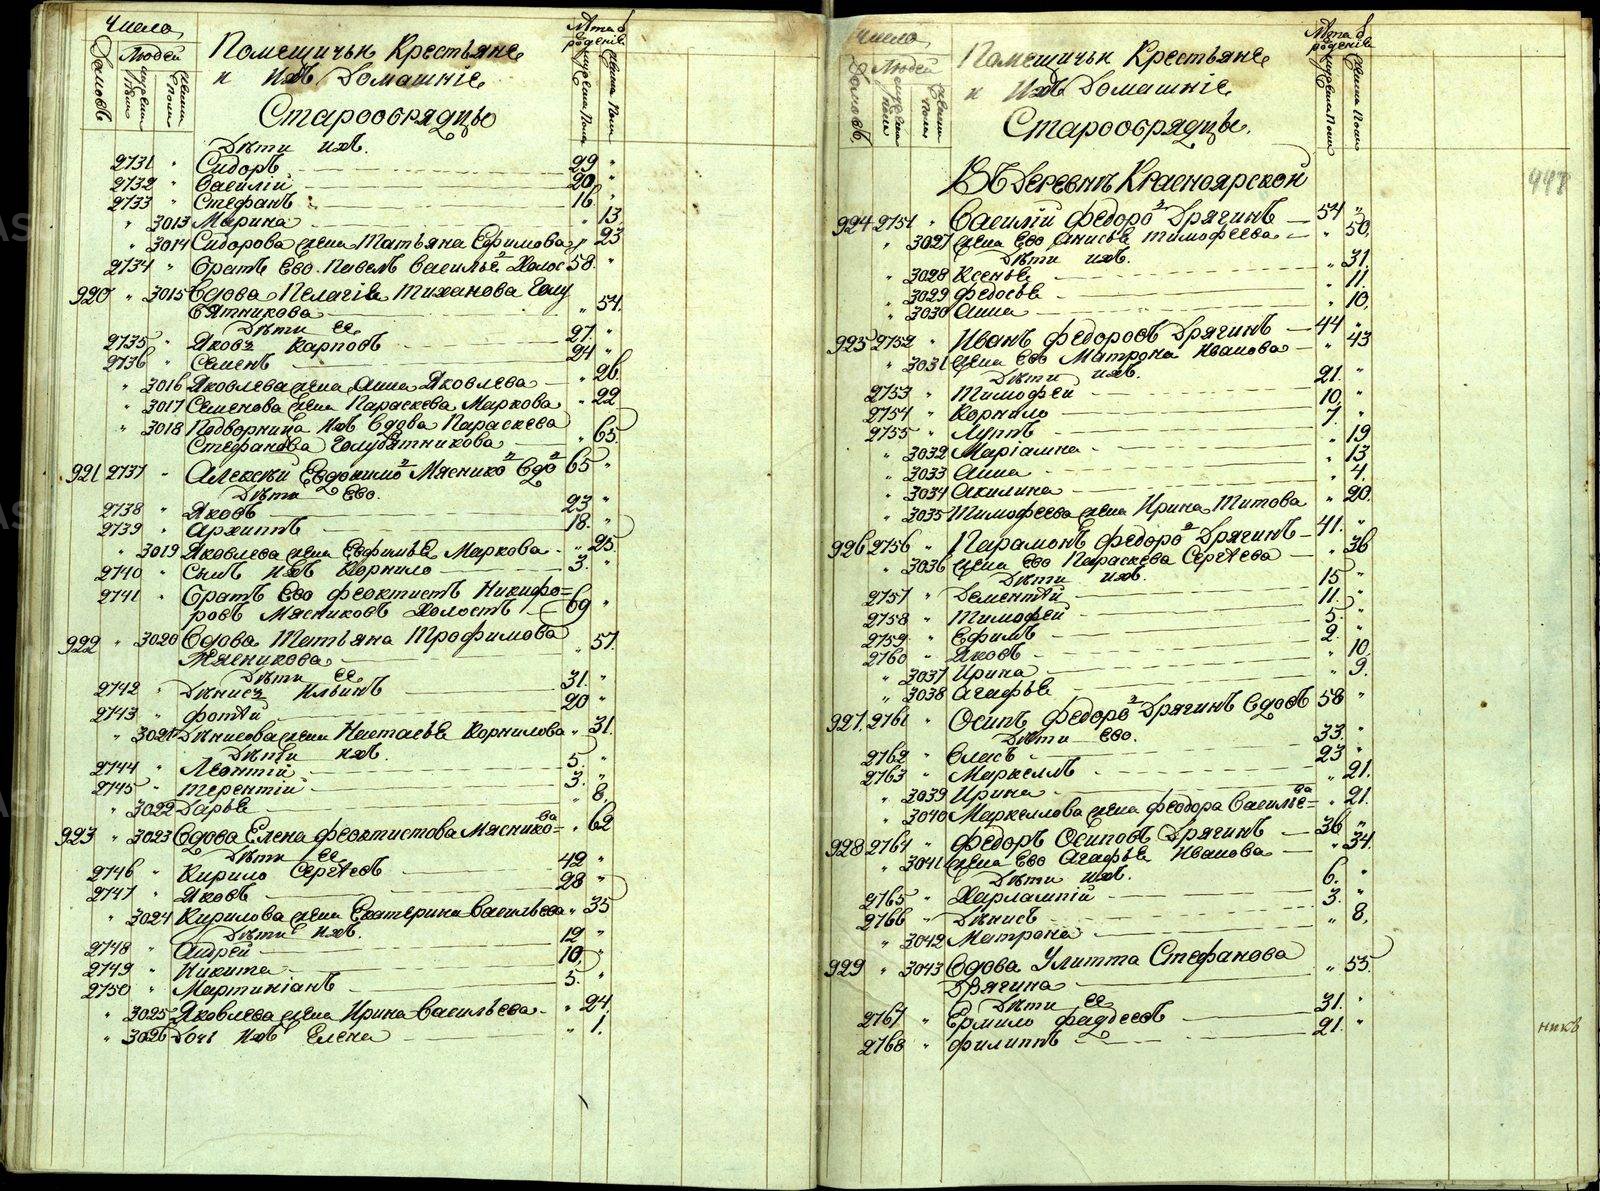 Числа
Домовъ
Людей
мужеска пола
женска пола
Помещичьи Крестьяне
и ихъ домашніе
Старообрядцы
Лѣта отъ рожденія
мужеска пола
женска пола
Дѣти ихъ.
2731 " Сидоръ 29 "
2732 " Василій 20 "
2733 " Стефанъ 16 "
" 3013 Марина " 13.
" 3014 Сидорова жена Татьяна Ефимова " 23
2734 " Братъ Ево Павелъ Васильев Холос 58. "
920 " 3015 Вдова Пелагія Тиханова Голу
бятникова " 54.
Дѣти ее
2735 " Яковъ Карповъ 27. "
2736 " Семенъ 24 "
" 3016 Яковлева жена Анна Яковлева " 26.
" 3017 Семенова жена Параскева Маркова " 22
" 3018 Подворница ихъ Вдова Параскева
Стефанова Голубятникова " 65.
921 2737 " Алексѣй Евдокимо в Меснико в вдо в 65 "
Дѣти Ево.
2738 " Яковъ 23 "
2739 " Архиппъ 18. "
" 3019 Яковлева жена Евфимья Маркова " 25.
2740 " Сынъ ихъ Корнило 3. "
2741 " Братъ Ево Феоктистъ Никифо=
ровъ Месниковъ Холостъ 69 "
922 " 3020 Вдова Татьяна Трофимова
Месникова " 57.
Дѣти ее
2742 " Дѣнисъ Ильинъ 31. "
2743 " Фотѣй 20 "
" 3021 Дѣнисова жена Настасья Корнилова " 31.
Дѣти ихъ.
2744 " Леонтій 5. "
2745 " Терентій 3. "
" 3022 Дарья " 8.
923 " 3023 Вдова Елена Феоктистова Меснико=ва " 62
Дѣти ее
2746 " Кирило Сергѣевъ 42 "
2747 " Яковъ 28 "
" 3024 Кирилова жена Екатерина Васильева " 35
Дѣти ихъ.
2748 " Андрей 12 "
2749 " Никита 10. "
2750 " Мартиніанъ 5. "
" 3025 Яковлева жена Ирина Васильева " 24.
" 3026 Дочь ихъ Елена " 1.
Числа
Домовъ
Людей
мужеска пола
женска пола
Помещичьи Крестьяне
и Ихъ домашніе
Старообрядцы.
Лѣта отъ рожденія
мужеска пола
женска пола
Въ Деревнѣ Красноярской
924 2751 " Василій Федоро в Дрягинъ 54 "
" 3027 жена Ево Анисья Тимофеева " 50.
Дѣти ихъ.
" 3028 Ксенья " 31.
" 3029 Федосья " 11.
" 3030 Анна " 10.
925 2752 " Иванъ Федоровъ Дрягинъ 44 "
" 3031 жена Ево Матрона Иванова " 43
Дѣти ихъ.
2753 " Тимофей 21. "
2754 " Корнило 10. "
2755 " Луппъ 7. "
" 3032 Маріамна " 19
" 3033 Анна " 13
" 3034 Акилина " 4.
" 3035 Тимофеева жена Ирина Титова " 20.
926 2756 " Парамонъ Федоро в Дрягинъ 41. "
" 3036 жена Ево Параскева Сергѣева " 36
Дѣти ихъ.
2757 " Дементѣй 15 "
2758 " Тимофей 11. "
2759 " Ефимъ 5. "
2760 " Яковъ 2. "
" 3037 Ирина " 10.
" 3038 Агафья " 9.
927. 2761 " Осипъ Федоро в Дрягинъ Вдовъ 58 "
Дѣти Ево.
2762 " Власъ 33. "
2763 " Маркеллъ 23 "
" 3039 Ирина " 21.
" 3040 Маркеллова жена Федора Василье=ва " 21.
928 2764 " Федоръ Осиповъ Дрягинъ 36 "
" 3041 жена Ево Агафья Иванова " 34.
Дѣти ихъ.
2765 " Харлампій 6. "
2766 " Дѣнисъ 3. "
" 3042 Матрона " 8.
929 " 3043 Вдова Улитта Стефанова
Дрягина " 55.
Дѣти ее
2767 " Ермило Фадѣевъ 31. "
2768 " Филиппъ 21. "